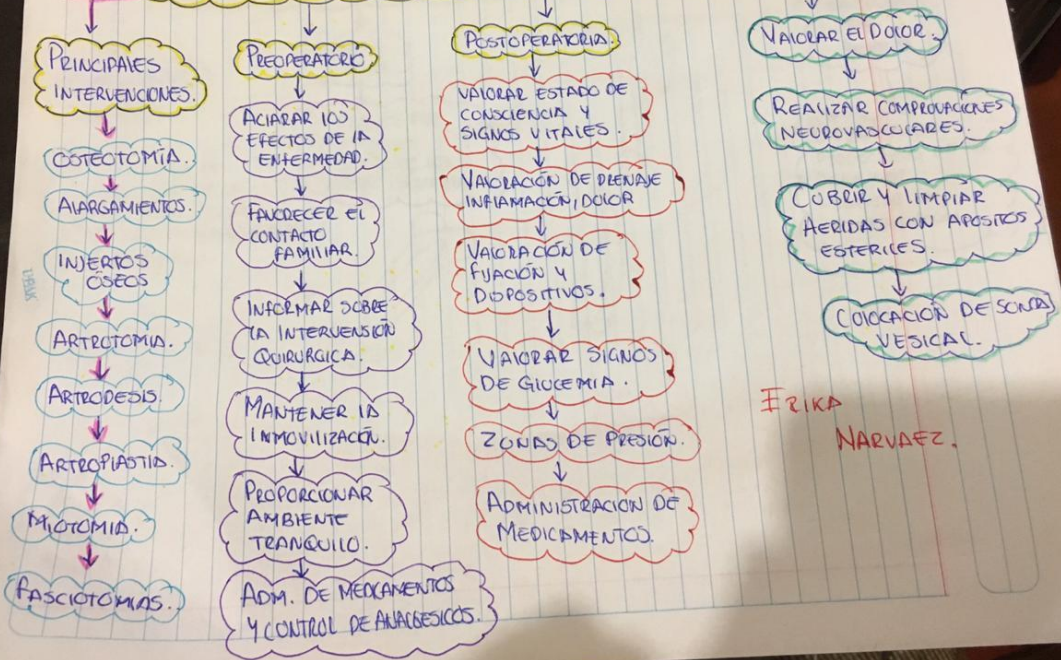 PRINCIPALES
INTERVENCIONES.
OSTEOTOMÍA.
ALARGAMIENTOS.
INJERTOS
ÓSEOS
ARTROTOMIA.
ARTRODESIS.
ARTROPLASTIA.
MIOTOMIA.
FASCIOTOMIAS.
PREOPERATORIO
ACLARAR LOS
EFECTOS DE LA
ENFERMEDAD.
FAVORECER EL
CONTACTO
FAMILIAR.
INFORMAR SOBRE
LA INTERVENSIÓN
QUIRÚRGICA.
MANTENER LA
INMOVILIZACIÓN.
PROPORCIONAR
AMBIENTE
TRANQUILO.
ADM. DE MEDICAMENTOS
Y CONTROL DE ANALGESICOS.
POSTOPERATORIA.
VALORAR ESTADO DE
CONSCIENCIA Y
SIGNOS VITALES.
VALORACIÓN DE DRENAJE
INFLAMACIÓN, DOLOR
VALORACIÓN DE
FIJACIÓN Y
DISPOSITIVOS.
VALORAR SIGNOS
DE GLUCEMIA.
ZONAS DE PRESIÓN.
ADMINISTRACIÓN DE
MEDICAMENTOS.
VALORAR EL DOLOR.
REALIZAR COMPROVACIONES
NEUROVASCULARES.
CUBRIR Y LIMPIAR
HERIDAS CON APOSITOS
ESTERILES.
COLOCACIÓN DE SONDA
VESICAL.
ERIKA
NARVAEZ.